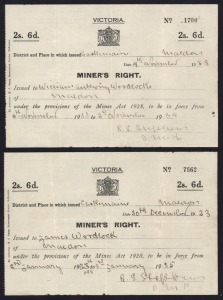 VICTORIA.
2s. 6d.
Nº 1700
2s. 6d.
District and Place in which issued Castlemaine Maldon
Date 9th November 1933
MINER'S RIGHT.
Issued to William Anthony Wordlock
of Maldon
under the provisions of the Mines Act 1928, to be in force from
November 1933 to November
VICTORIA.
2s. 6d.
Nº 7562
2s. 6d.
District and Place in which issued Castlemaine Maldon
Date 30th December 1933
MINER'S RIGHT.
Issued to James Wordlock
of Maldon
under the provisions of the Mines Act 1928, to be in force from
2nd January to January